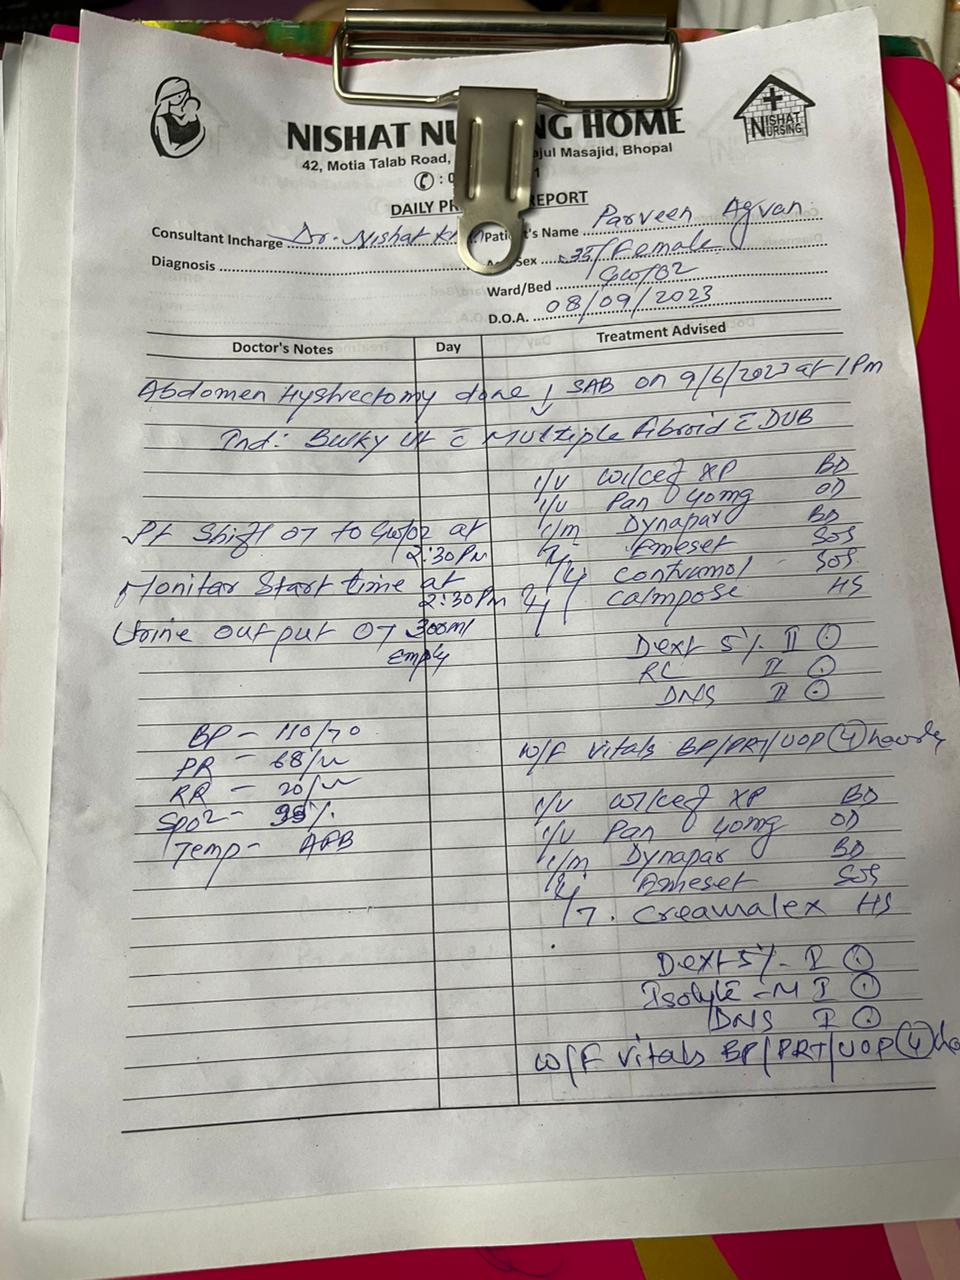 NISHAT NU NG HOME
NISHAT
NURSING
42, Motia Talab Road, ajul Masajid, Bhopal
: 0 1
DAILY PR REPORT
Consultant Incharge Dr. Nishat Kh
Patient's Name Parveen Agvan
Diagnosis
Sex 35/Female
Ward/Bed GW/02
D.O.A. 08/09/2023
Doctor's Notes Day Treatment Advised
Abdomen Hystrectomy done ↓ SAB on 9/6/2023 at 1Pm
Ind: Bulky Ut c̄ Multiple fibroid c̄ DUB
I/V Wilcef XP BD
I/V Pan 40mg OD
Pt Shift OT to GW/02 at 2:30Pm
I/m Dynapar BD
Emeset SOS
Monitar Start time at 2:30Pm
Contramol SOS
Calmpose HS
Urine output OT 300ml Empty
Dext 5% II ⊙
RL II ⊙
DNS II ⊙
BP - 110/70
PR - 68/m
RR - 20/m
SpO2 - 99%
Temp - AFB
W/F vitals BP/PRT/UOP (4) hourly
I/V Wilcef XP BD
I/V Pan 40mg OD
I/m Dynapar BD
Emeset SOS
Creamalex HS
Dext 5% - I ⊙
Isolyte - M I ⊙
DNS I ⊙
W/F vitals BP/PRT/UOP (4) ho